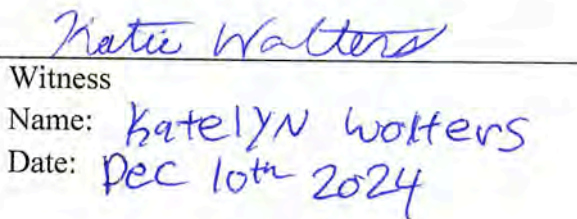 Katie Walters
Witness
Name: Katelyn Walters
Date: Dec 10th 2024